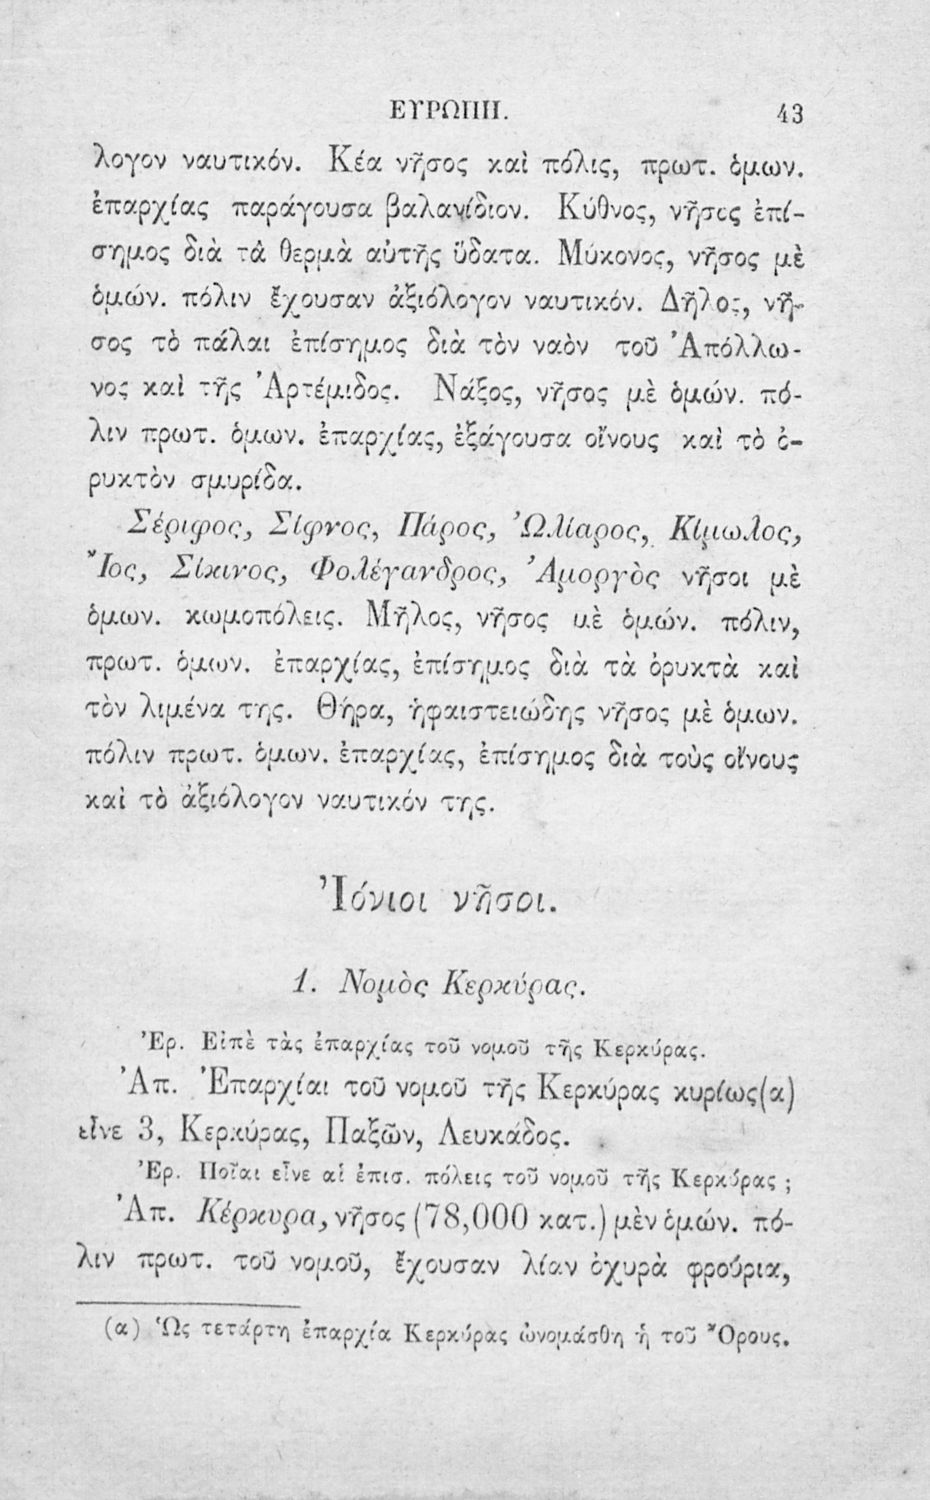 ΕΥΡΩΠΗ. 43
λογον ναυτικόν. Κέα νῆσος καὶ πόλις, πρωτ. ὁμων.
ἐπαρχίας παράγουσα βαλανίδιον. Κύθνος, νῆσος ἐπί-
σημος διὰ τὰ θερμὰ αὐτῆς ὕδατα. Μύκονος, νῆσος μὲ
ὁμών. πόλιν ἔχουσαν ἀξιόλογον ναυτικόν. Δῆλος, νῆ-
σος τὸ πάλαι ἐπίσημος διὰ τὸν ναὸν τοῦ Ἀπόλλω-
νος καὶ τῆς Ἀρτέμιδος. Νάξος, νῆσος μὲ ὁμών. πό-
λιν πρωτ. ὁμων. ἐπαρχίας, ἐξάγουσα οἴνους καὶ τὸ ὀ-
ρυκτὸν σμυρίδα.
Σέριφος, Σίφνος, Πάρος, Ὠλίαρος, Κίμωλος,
Ἴος, Σίκινος, Φολέγανδρος, Ἀμοργὸς νῆσοι μὲ
ὁμων. κωμοπόλεις. Μῆλος, νῆσος μὲ ὁμών. πόλιν,
πρωτ. ὁμων. ἐπαρχίας, ἐπίσημος διὰ τὰ ὀρυκτὰ καὶ
τὸν λιμένα της. Θήρα, ἡφαιστειώδης νῆσος μὲ ὁμων.
πόλιν πρωτ. ὁμων. ἐπαρχίας, ἐπίσημος διὰ τοὺς οἴνους
καὶ τὸ ἀξιόλογον ναυτικόν της.
Ἰόνιοι νῆσοι.
1. Νομὸς Κερκύρας.
Ἐρ. Εἰπὲ τὰς ἐπαρχίας τοῦ νομοῦ τῆς Κερκύρας.
Ἀπ. Ἐπαρχίαι τοῦ νομοῦ τῆς Κερκύρας κυρίως(α)
εἶνε 3, Κερκύρας, Παξῶν, Λευκάδος.
Ἐρ. Ποῖαι εἶνε αἱ ἐπισ. πόλεις τοῦ νομοῦ τῆς Κερκύρας ;
Ἀπ. Κέρκυρα, νῆσος (78,000 κατ.) μὲν ὁμών. πό-
λιν πρωτ. τοῦ νομοῦ, ἔχουσαν λίαν ὀχυρὰ φρούρια,
(α) Ὡς τετάρτη ἐπαρχία Κερκύρας ὠνομάσθη ἡ τοῦ Ὄρους.